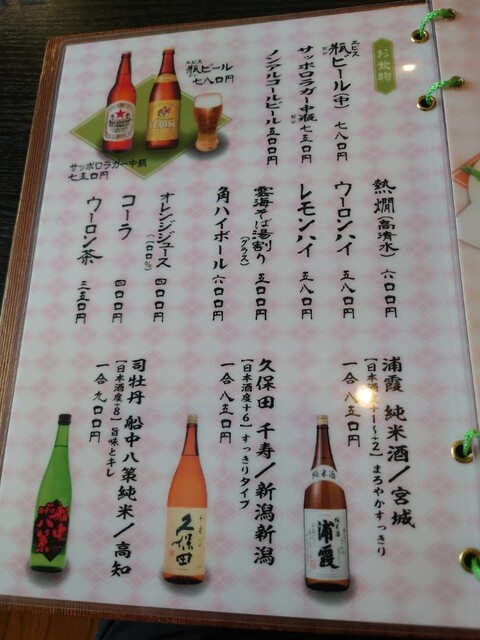 お飲物
ヱビス
瓶ビール(中) 七八〇円
ビン
サッポロラガー中瓶 七五〇円
ビン
ノンアルコールビール 五〇〇円
ヱビス
瓶ビール
七八〇円
サッポロラガー中瓶
七五〇円
熱燗(高清水) 六〇〇円
ウーロンハイ 五八〇円
レモンハイ 五八〇円
雲海そば湯割り(グラス) 五〇〇円
角ハイボール 六〇〇円
オレンジジュース(100%) 四〇〇円
コーラ 四〇〇円
ウーロン茶 三五〇円
浦霞 純米酒/宮城
【日本酒度+1~+2】まろやかすっきり
一合 八五〇円
純米酒
浦霞
久保田 千寿/新潟新潟
【日本酒度+6】すっきりタイプ
一合 八五〇円
千寿
久保田
司牡丹 船中八策純米/高知
【日本酒度+8】旨味とキレ
一合 九〇〇円
船中八策